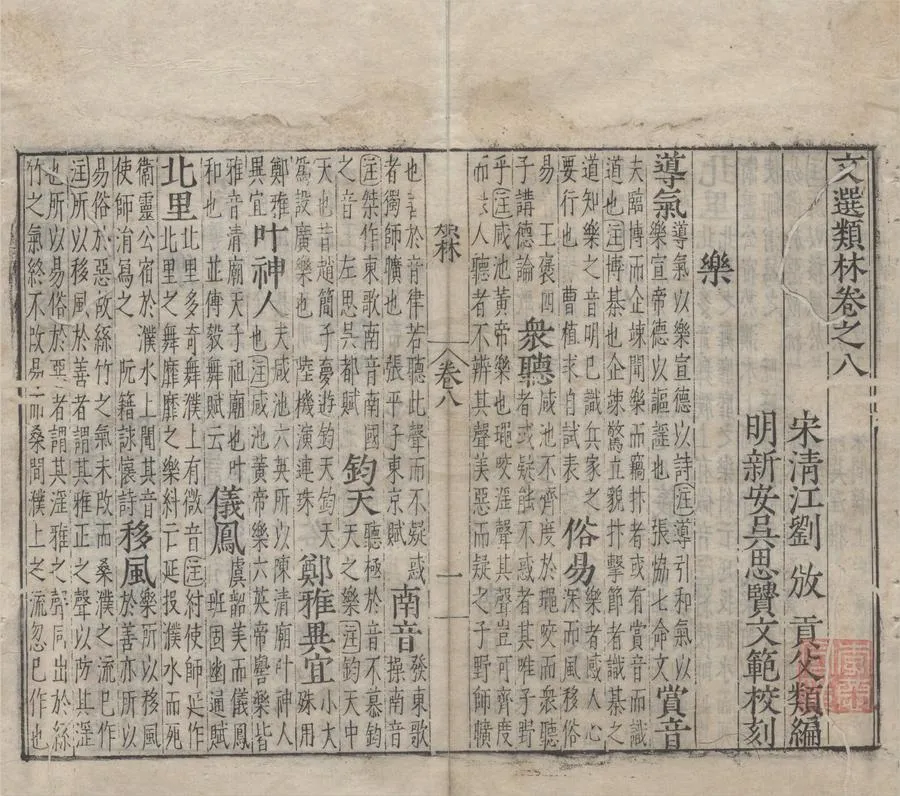 文選類林卷之八
宋清江劉攽貢父類編
明新安吳思賢文範校刻
樂
導氣 導氣以樂宣德以詩注導引和氣以樂宣帝德以謳謠也 張協七命文 賞音
夫臨博而企竦聞樂而竊抃者或有賞音而識
道也注博棊也企竦驚立貌抃擊節者識棊之
道知樂之音明己識兵家之要行也 曹植求自試表 俗易 樂者感人心深而風移俗
易 王褒四子講德論 眾聽 咸池不齊度於䵷咬而眾聽者或疑能不惑者其唯子野
乎注咸池黃帝樂也䵷咬淫聲其聲豈可齊度
而人聽者不辨其聲美惡而疑之子野師曠
林 卷八 一
也言於音律若聽此聲而不疑惑者獨師曠也 張平子東京賦 南音 發東歌操南音
注桀作東歌南音南國之音 左思吳都賦 鈞天 聽極於音不慕鈞天之樂注鈞天中
天也昔趙簡子夢遊鈞天鈞天為設廣樂也 陸機演連珠 鄭雅異宜 小大殊用
鄭雅異宜 叶神人 夫咸池六英所以陳清廟叶神人也注咸池黃帝樂六英帝嚳樂皆
雅音清廟天子祖廟也叶和也 並傅毅舞賦云 儀鳳 虞韶美而儀鳳 班固幽通賦
北里 北里多奇舞濮上有微音注紂使師延作北里之舞靡靡之樂紂亡延投濮水而死
衛靈公宿於濮水上聞其音使師涓寫之 阮籍詠懷詩 移風 樂所以移風於善亦所以
易俗於惡故絲竹之氣未改而桑濮之流已作
注所以移風於善者謂其雅正之聲以防其淫
也所以易俗於惡者謂其淫雅之聲同出於絲
竹之氣終不改易而桑間濮上之流忽已作也